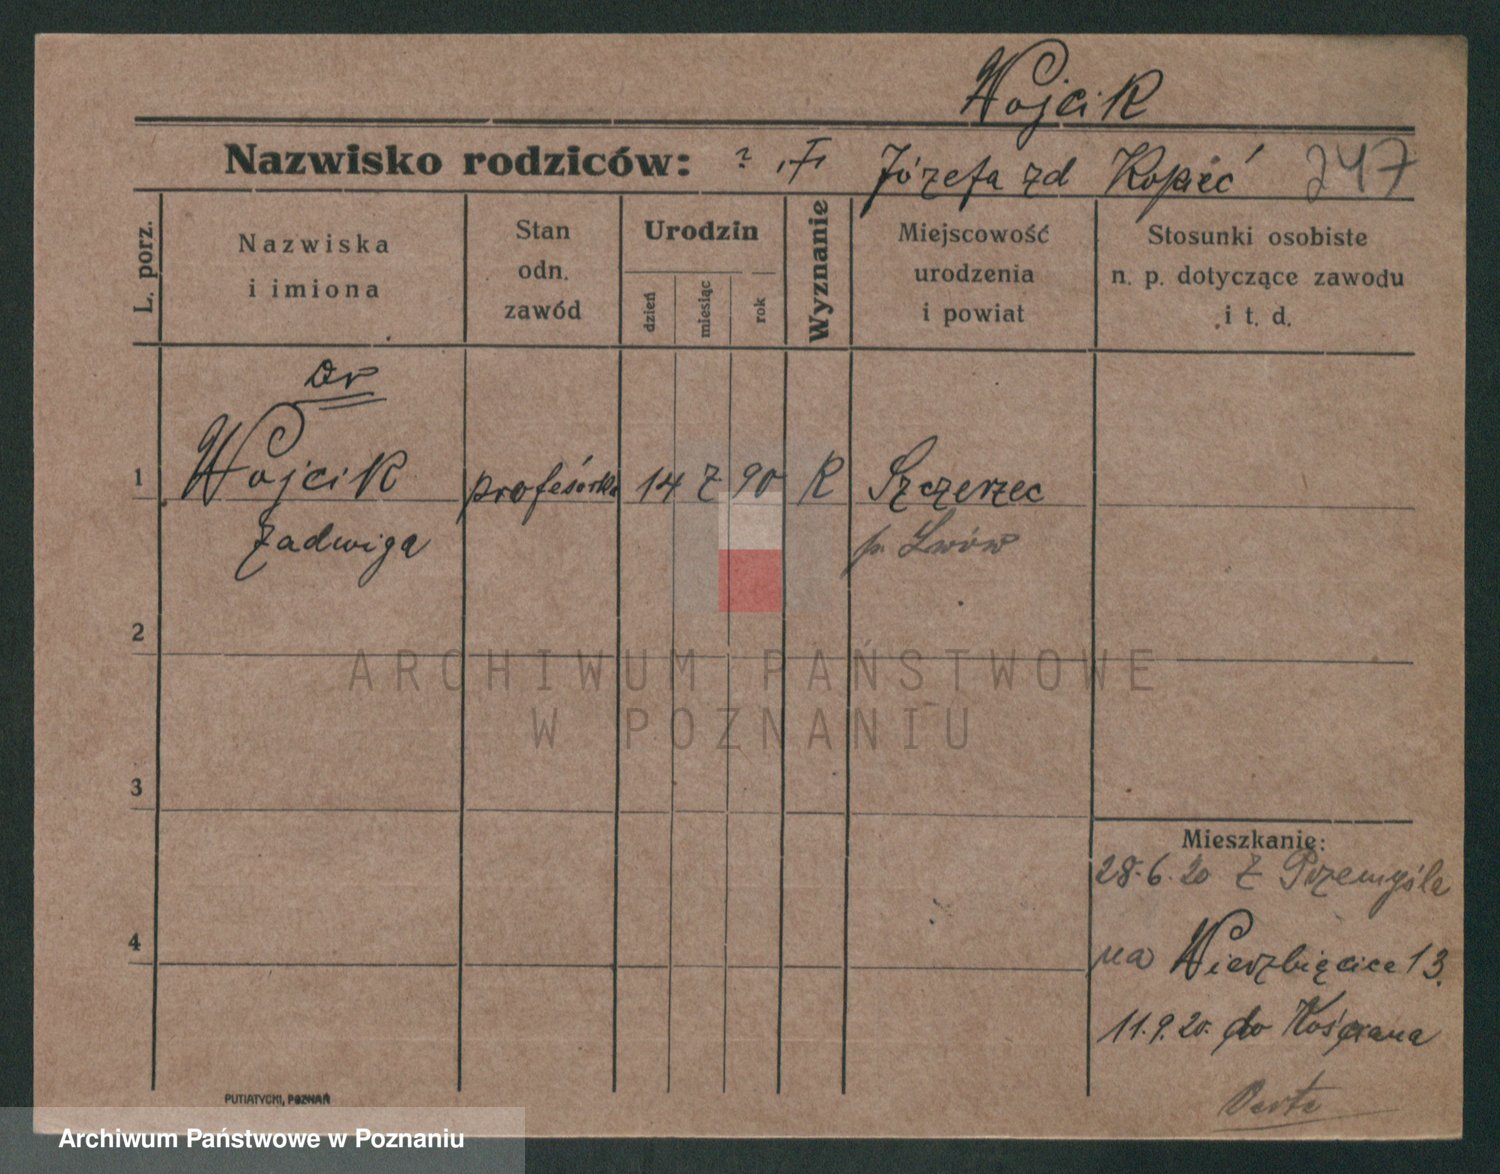 Wojcik
Nazwisko rodziców: ? Józefa zd Kopieć 247
L. porz.
Nazwiska
i imiona
Stan
odn.
zawód
Urodzin
dzień
miesiąc
rok
Wyznanie
Miejscowość
urodzenia
i powiat
Stosunki osobiste
n. p. dotyczące zawodu
i t. d.
Dr
1 Wojcik profesorka 14 7 90 R Szczerzec
Jadwiga p. Lwów
2
3
4
Mieszkanie:
28.6.20 z Przemyśla
na Wierzbięcice 13.
11.9.20. do Kościana
PUTIATYCKI, POZNAŃ
ARCHIWUM PAŃSTWOWE
W POZNANIU
Archiwum Państwowe w Poznaniu